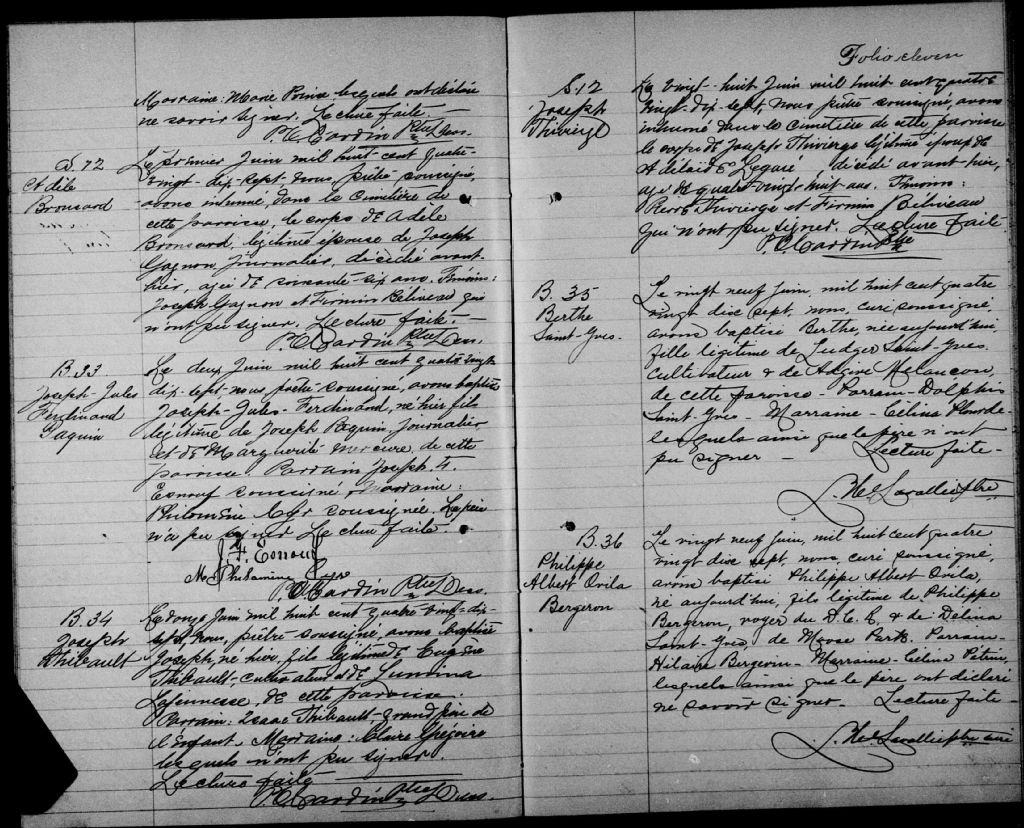 Marraine: Marie lesquels ont déclaré
ne savoir signer. Lecture faite.
P. C. Cardin Ptre
S. 12
Adèle
Bronsard
Le premier Juin mil huit cent quatre-
vingt-dix-sept, nous, prêtre soussigné,
avons inhumé dans le Cimetière de
cette paroisse, le corps de Adèle
Bronsard, légitime épouse de Joseph
Gagnon Journalier, décédée avant-
hier, agée de soixante-six ans. Témoins:
Joseph Gagnon et Firmin Béliveau qui
n'ont pu signer. Lecture faite-
P. C. Cardin Ptre Des.
B. 33
Joseph-Jules
Ferdinand
Paquin
Le deux Juin mil huit cent quatre vingt
dix-sept-nous prêtre-soussigné, avons baptisé
Joseph-Jules-Ferdinand, né hier fils
légitime de Joseph Paquin, Journalier
et de Marguerite Mercure, de cette
paroisse. Parrain Joseph F.
Esnouf soussigné, Marraine:
Philomène Cyr soussignée. Le père
n'a pu signer Lecture faite.
J. F. Esnouf
M. Philomine Cyr
P. C. Cardin Ptre Des.
B. 34
Joseph
Thibault
Le onze Juin mil huit cent quatre vingt-dix-
sept, nous, prêtre-soussigné, avons baptisé
Joseph, né hier, fils légitime de Eugène
Thibault, cultivateur et de
Lajeunesse, de cette paroisse.
Parrain: Isaac Thibault, grand père de
l'Enfant, Marraine: Claire Grégoire
lesquels n'ont pu signer.
Lecture faite
P. C. Cardin Ptre Des.
Folio eleven
S. 12
Joseph
Thivierge
Le vingt-huit Juin mil huit cent quatre
vingt-dix-sept, nous prêtre soussigné, avons
inhumé dans le cimetière de cette paroisse
le corps de Joseph Thivierge légitime époux de
Adélaïde Legaré décédé avant-hier,
agé de quatre vingt-huit ans. Témoins:
Pierre Thivierge et Firmin Béliveau
qui n'ont pu signer. Lecture faite
P. C. Cardin Ptre
B. 35
Berthe
Saint-Yves.
Le vingt neuf juin, mil huit cent quatre
vingt dix sept, nous, curé soussigné,
avons baptisé Berthe, née aujourd'hui,
fille légitime de Ludger Saint-Yves.
Cultivateur & de Melancon,
de cette paroisse-Parrain-Dolphis
Saint-Yves-Marraine-Célina Plourde-
lesquels ainsi que le père n'ont
pu signer- Lecture faite-
Lavallée ptre
B. 36
Philippe
Albert Ovila
Bergeron
Le vingt neuf juin, mil huit cent quatre
vingt dix sept, nous curé soussigné,
avons baptisé Philippe Albert Ovila,
né aujourd'hui, fils légitime de Philippe
Bergeron, & de Délina
Saint-Yves, de Moose Park. Parrain-
Hilaire Bergeron-Marraine-Célina
lesquels ainsi que le père ont déclaré
ne savoir signer- Lecture faite-
Lavallée ptre curé